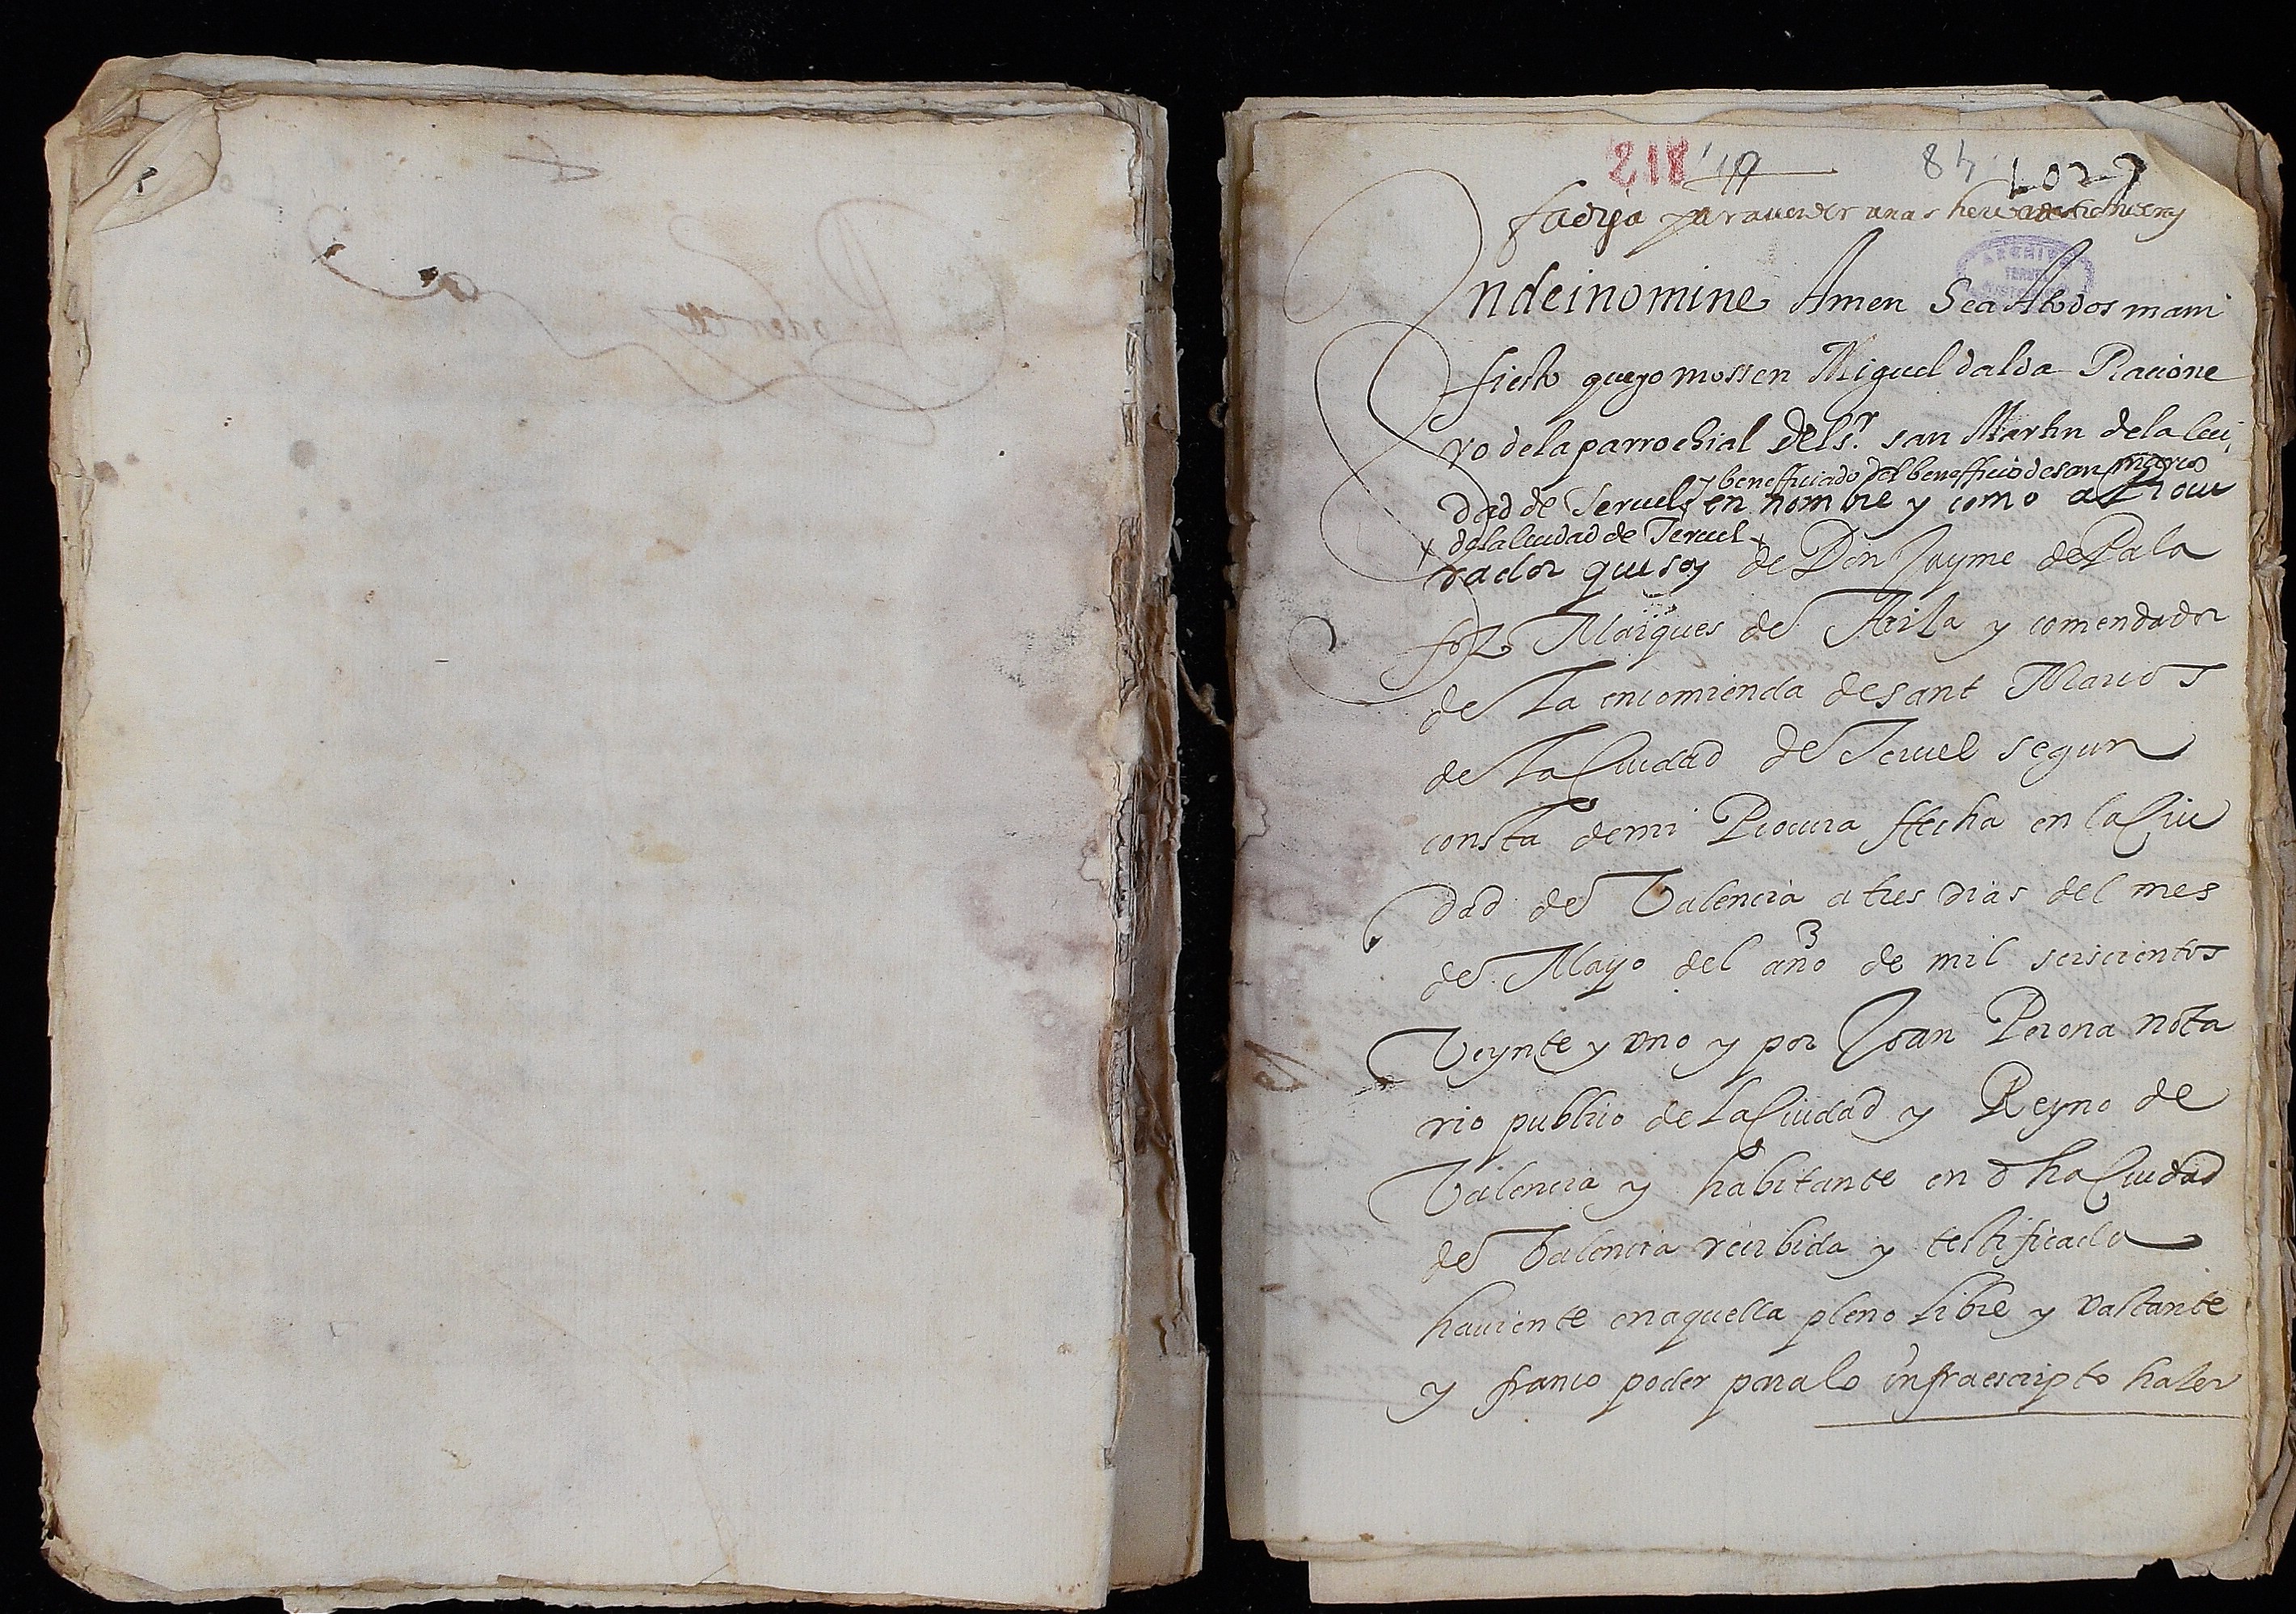 218 84 1027
fadiga para vender unas
ARCHIVO
TERUEL
HISTORICO
Yndeinomine Amen Sea Atodos mani
fiesto queyo mossen Miguel dalda Racione
ro dela parrochial Dels.r san Martin dela Ciu
y benefficiado del benefficio de san marco
dad de Teruel en nombre y como a Procu
x dela Ciudad de Teruel x
rador que soy de Don Jayme de Pala
fox Marques de Ariza y comendador
de La encomienda de sant Marcos
de La Ciudad de Teruel segun
consta demi Procura ffecha en la Ciu
dad de Valencia a tres dias del mes
de Mayo del año de mil seiscientos
Veynte y uno y por Joan Perona nota
rio publico de La Ciudad y Reyno de
Valencia y habitante en dha Ciudad
de Valencia recibida y testificada
haviente enaquella pleno Libre y vastante
y franco poder paralo infraescripto hazer